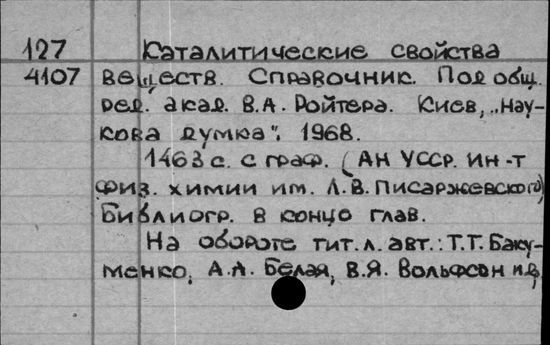 127 Каталитические свойства
4107 веществ. Справочник. Под общ.
ред. акад. В.А. Ройтера. Киев, „Нау-
кова думка", 1968.
1463 с. с граф. (АН УССР. Ин-т
физ. химии им. Л.В. Писаржевского)
Библиогр. в конце глав.
На обороте тит. л. авт.: Т.Т. Баку-
менко, А.А. Белая, В.Я. Вольфсон и др.